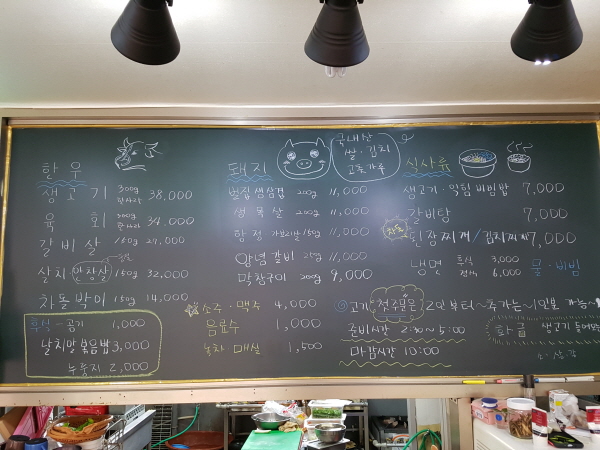 한우
생고기 300g 한사라 38,000
육회 300g 한사라 34,000
갈비살 150g 24,000
살치 안창살 150g 32,000
차돌박이 150g 14,000
후식 - 공기 1,000
날치알 볶음밥 3,000
누룽지 2,000
돼지
국내산
쌀·김치
고추가루
벌집 생삼겹 200g 11,000
생목살 200g 11,000
항정 가브리살 150g 11,000
양념갈비 250g 11,000
막창구이 200g 9,000
소주·맥주 4,000
음료수 1,000
녹차 매실 1,500
식사류
생고기·익힘 비빔밥 7,000
갈비탕 7,000
된장찌개/김치찌개 7,000
냉면 후식 3,000
점심 6,000
물·비빔
고기 첫주문은 2인부터~추가는~1인분 가능~
준비시간 2:30~5:00
마감시간 10:00
한급 생고기 들어오는